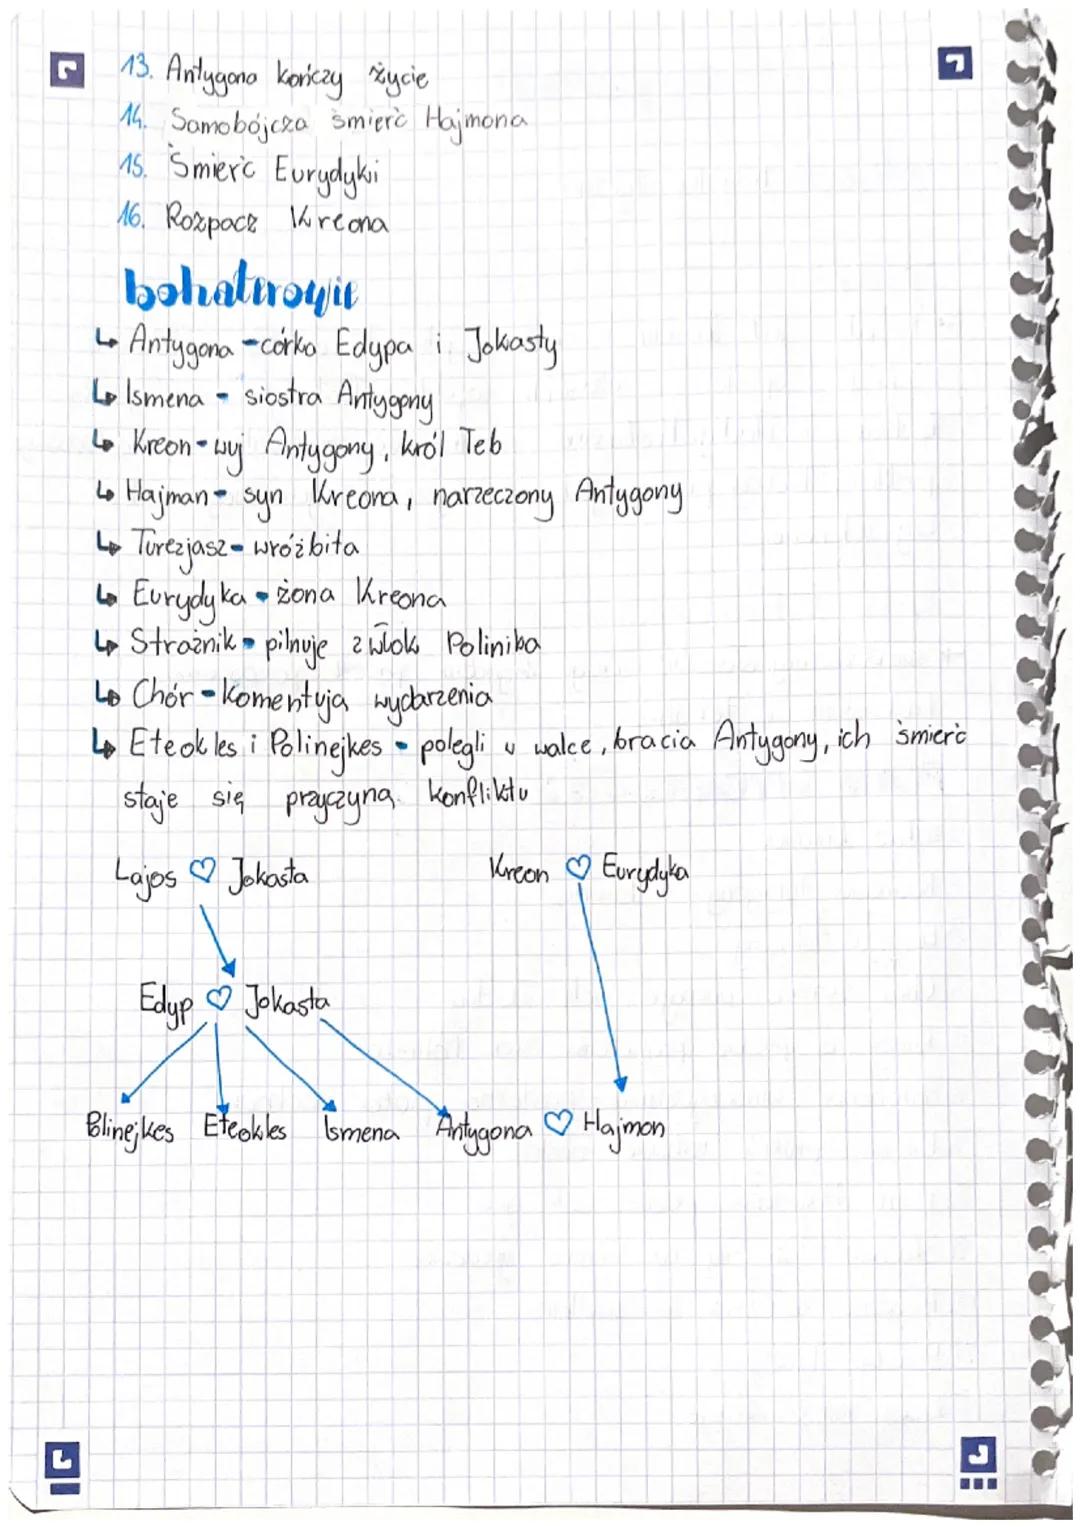 13. Antygona kończy życie
14. Samobójcza śmierć Hajmona
15. Śmierć Eurydyki
16. Rozpacz Kreona
bohaterowie
↳ Antygona - córka Edypa i Jokasty
↳ Ismena - siostra Antygony
↳ Kreon - wuj Antygony, król Teb
↳ Hajman - syn Kreona, narzeczony Antygony
↳ Turezjasz - wróżbita
↳ Eurydyka - żona Kreona
↳ Strażnik - pilnuje zwłok Poliniba
↳ Chór - komentują wydarzenia
↳ Eteokles i Polinejkes - polegli w walce, bracia Antygony, ich śmierć
staje się przyczyną konfliktu
Lajos ♡ Jokasta Kreon ♡ Eurydyka
Edyp ♡ Jokasta
Polinejkes Eteokles Ismena Antygona ♡ Hajmon